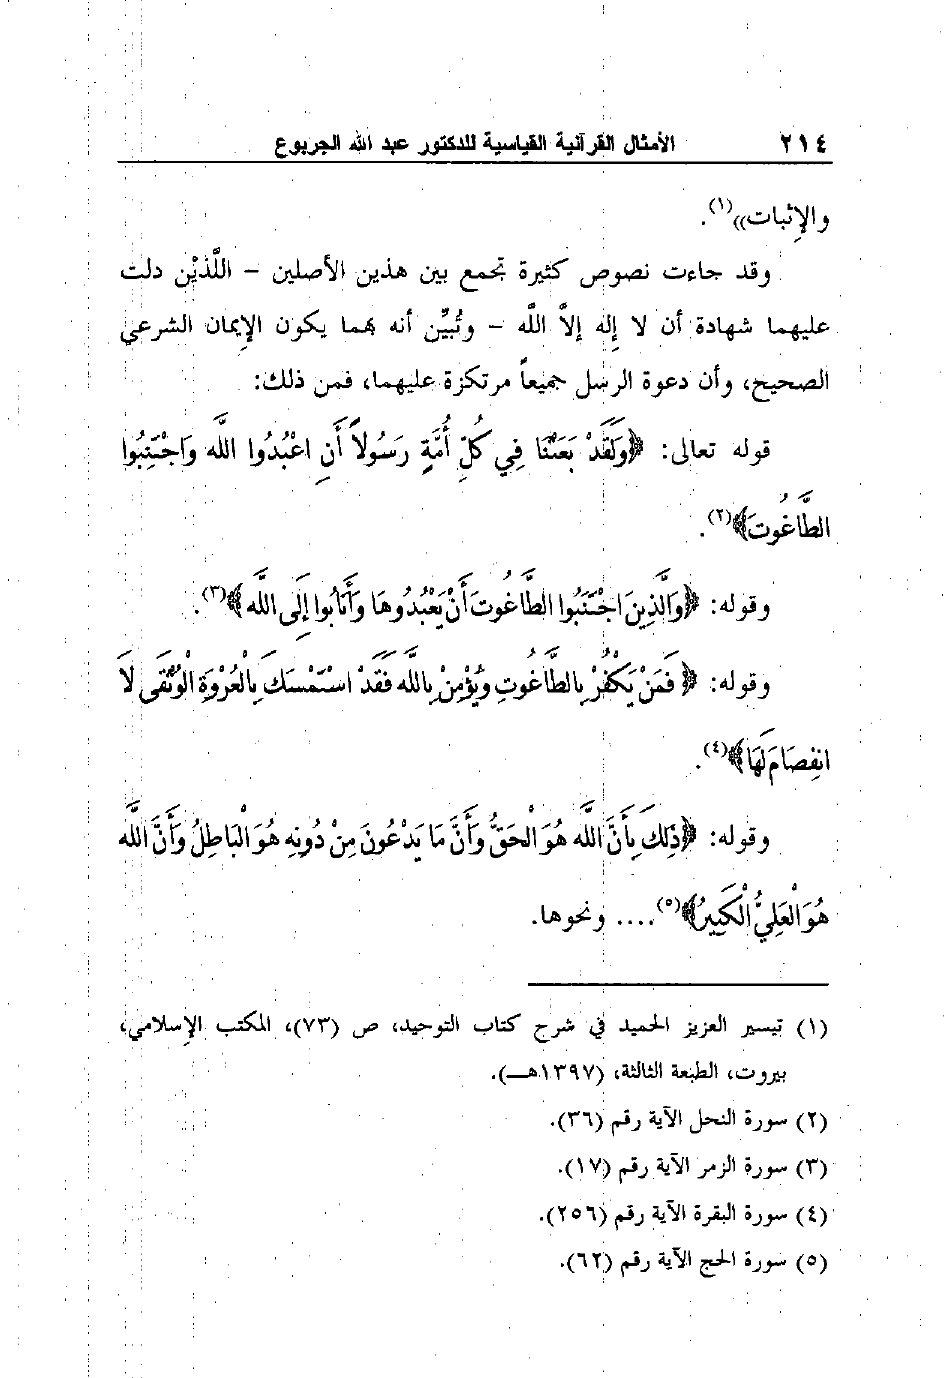 ٢١٤ الأمثال القرآنية القياسية للدكتور عبد الله الجربوع
والإثبات))(١).
وقد جاءت نصوص كثيرة تجمع بين هذين الأصلين - اللَّذَيْن دلت
عليهما شهادة أن لا إله إلاَّ اللَّه - وتُبيِّن أنه بهما يكون الإيمان الشرعي
الصحيح، وأن دعوة الرسل جميعاً مرتكزة عليهما، فمن ذلك:
قوله تعالى: ﴿وَلَقَدْ بَعَثْنَا فِي كُلِّ أُمَّةٍ رَسُولاً أَنِ اعْبُدُوا اللَّه وَاجْتَنِبُوا
الطَّاغُوتَ﴾(٢).
وقوله: ﴿وَالَّذِينَ اجْتَنَبُوا الطَّاغُوتَ أَنْ يَعْبُدُوهَا وَأَنَابُوا إِلَى اللَّه﴾(٣).
وقوله: ﴿فَمَنْ يَكْفُرْ بِالطَّاغُوتِ وَيُؤْمِنْ بِاللَّه فَقَدْ اسْتَمْسَكَ بِالْعُرْوَةِ الْوُثْقَى لَا
انفِصَامَ لَهَا﴾(٤).
وقوله: ﴿ذَلِكَ بِأَنَّ اللَّه هُوَ الْحَقُّ وَأَنَّ مَا يَدْعُونَ مِنْ دُونِهِ هُوَ الْبَاطِلُ وَأَنَّ اللَّه
هُوَ الْعَلِيُّ الْكَبِيرُ﴾(٥).... ونحوها.
(١) تيسير العزيز الحميد في شرح كتاب التوحيد، ص (٧٣)، المكتب الإسلامي،
بيروت، الطبعة الثالثة، (١٣٩٧هـ).
(٢) سورة النحل الآية رقم (٣٦).
(٣) سورة الزمر الآية رقم (١٧).
(٤) سورة البقرة الآية رقم (٢٥٦).
(٥) سورة الحج الآية رقم (٦٢).